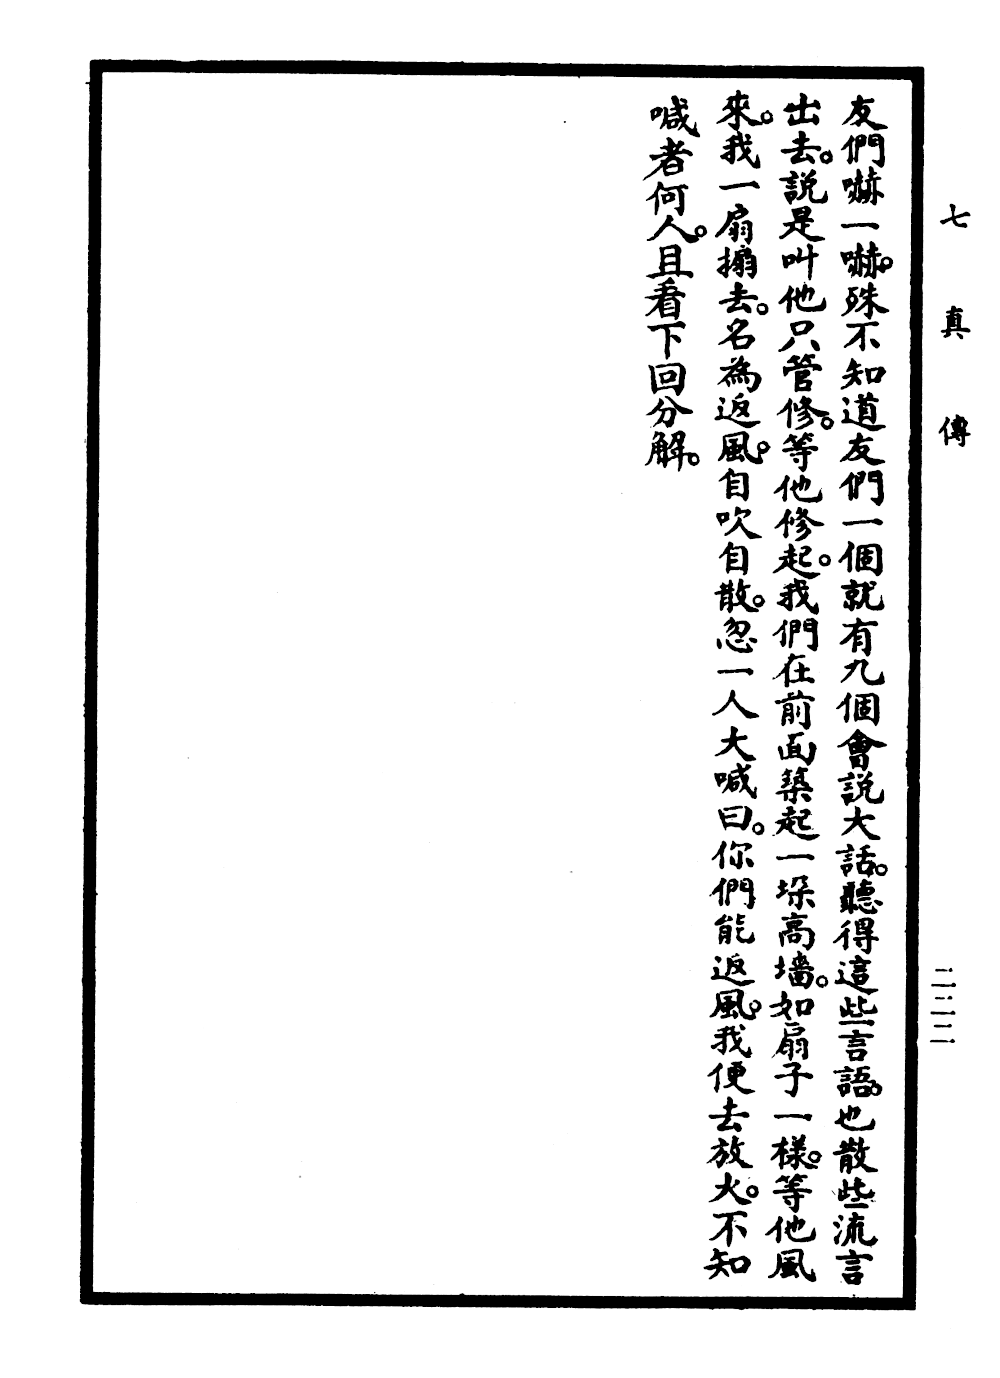 七真傳
友們嚇一嚇。殊不知道友們一個就有九個會說大話。聽得這些言語。也散些流言
出去。說是叫他只管修。等他修起。我們在前面築起一垛高墻。如扇子一樣。等他風
來。我一扇搧去。名為返風。自吹自散。忽一人大喊曰。你們能返風。我便去放火。不知
喊者何人。且看下回分解。
二二二